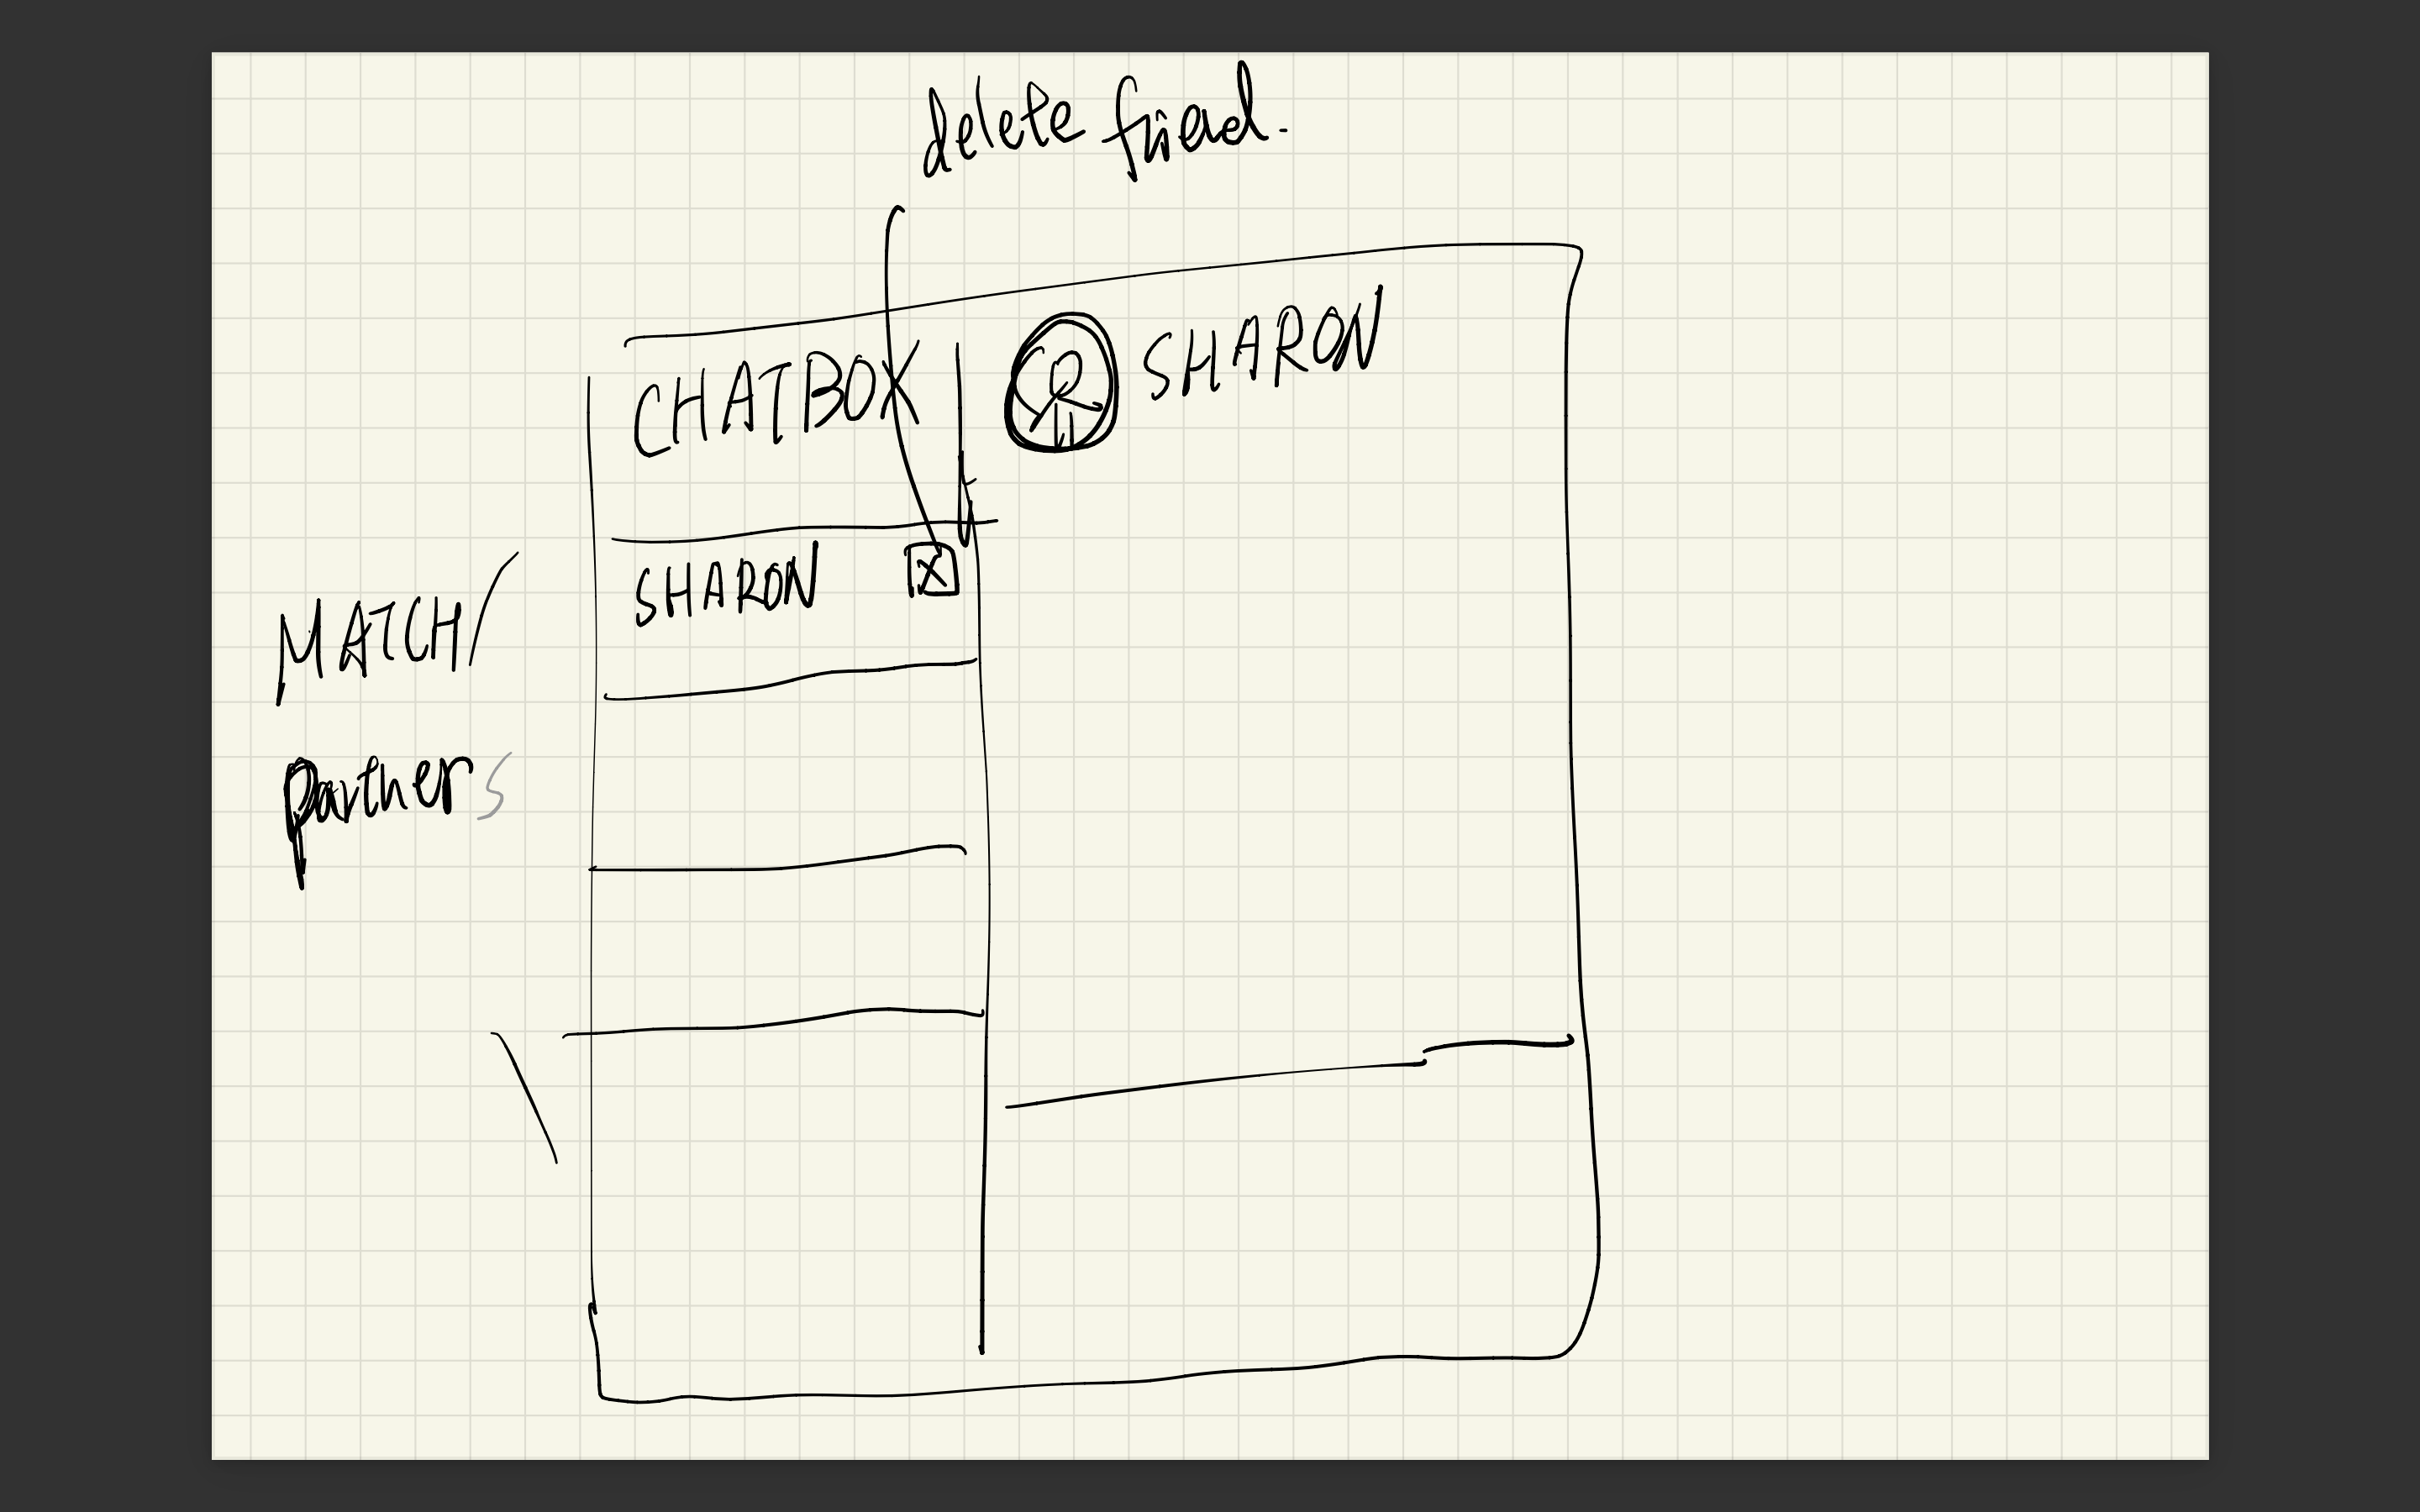 delete friend.
CHATBOX
SHARON
SHARON
MATCH
partners